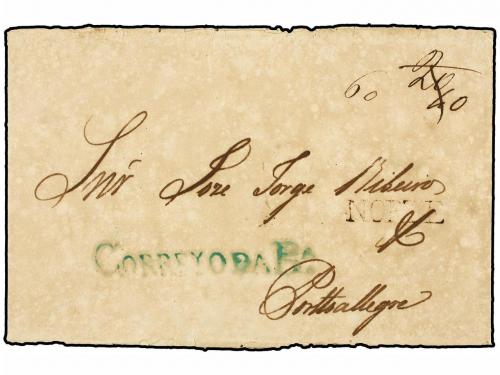 60
Snr Joze Jorge Ribeiro
NORTE
CORREYO DA BA.
Porttoallegre